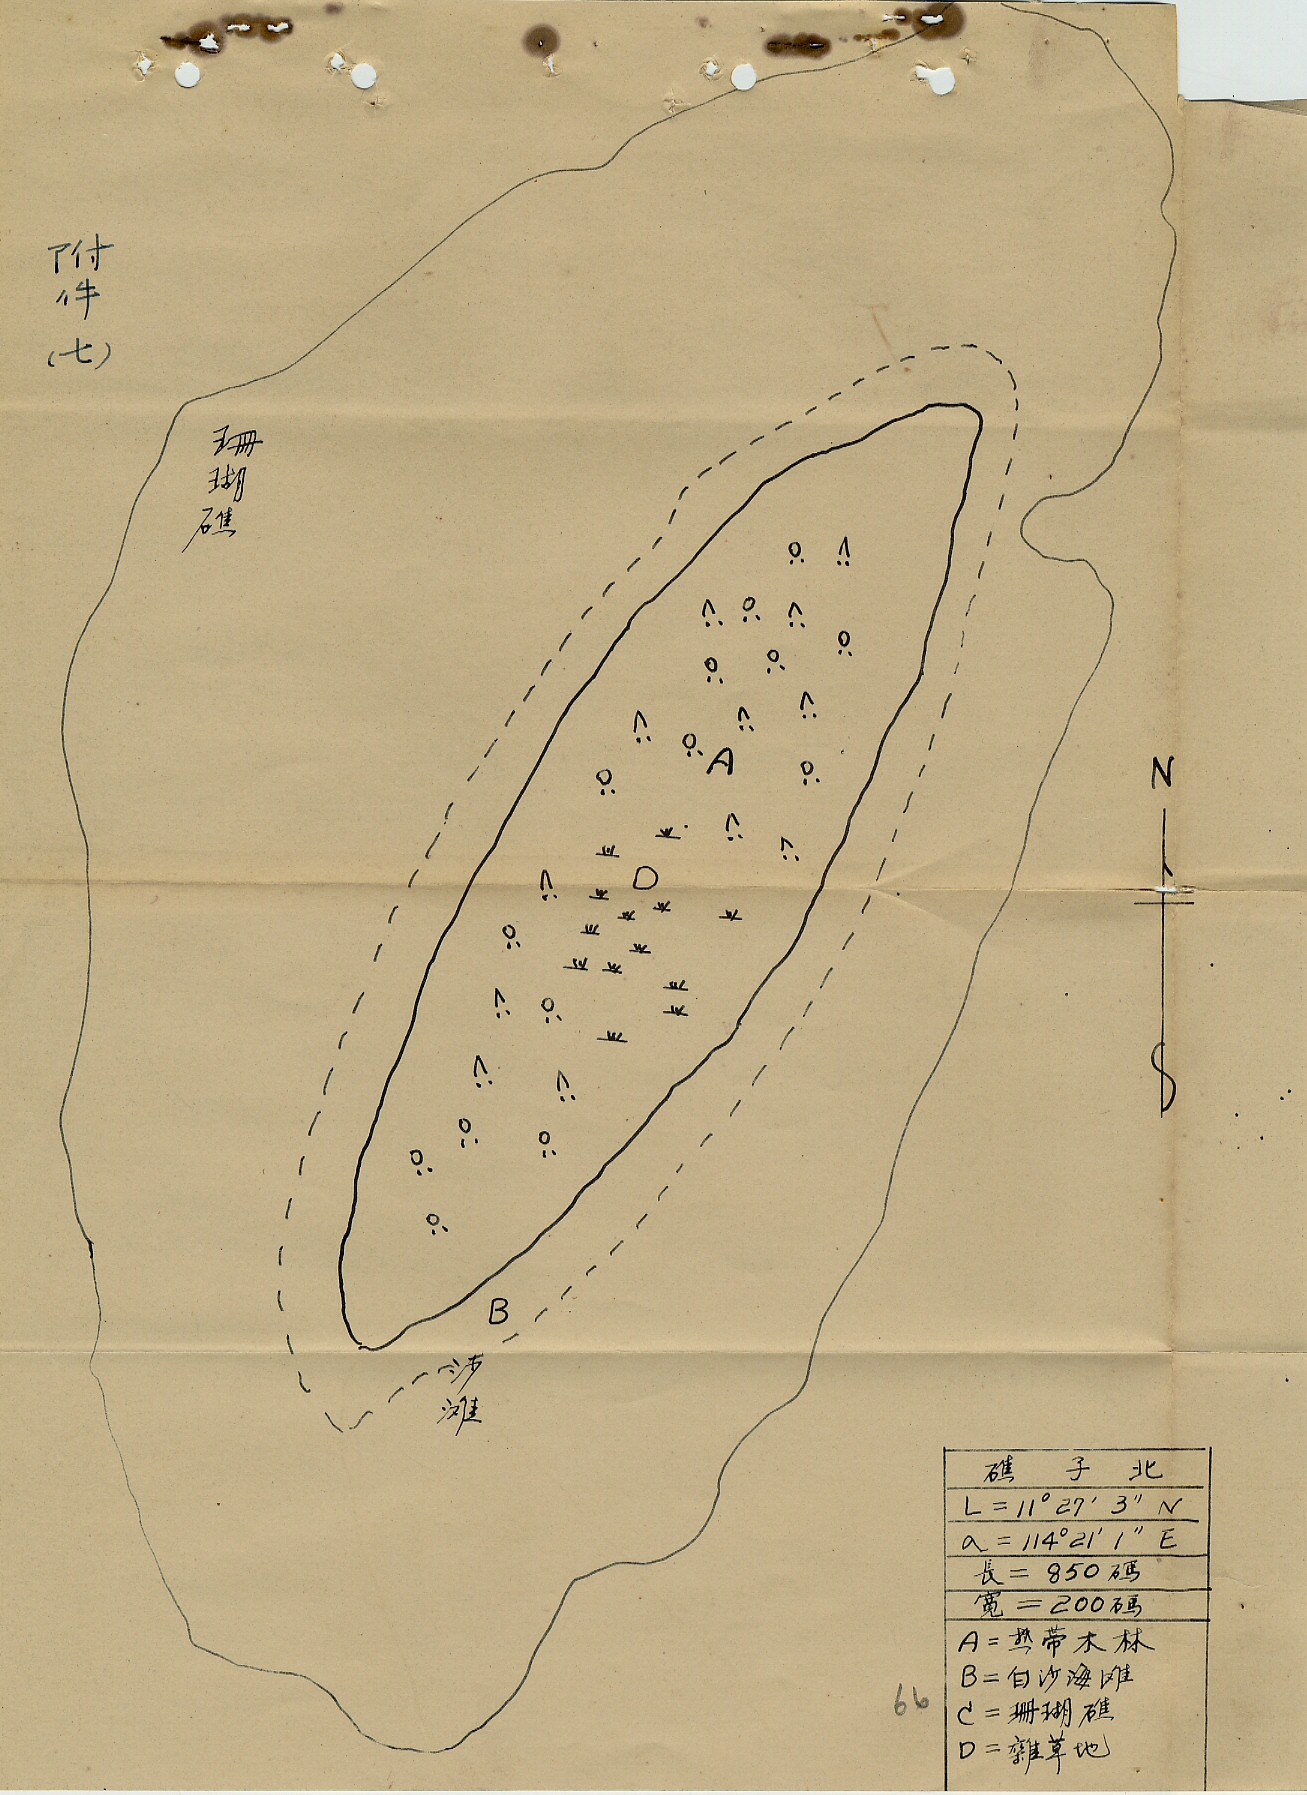 附
件
(七)
珊
瑚
礁
A
D
N
S
B
沙
滩
礁 子 北
L = 11° 27' 3" N
a = 114° 21' 1" E
長 = 850 碼
寬 = 200 碼
A = 热帶木林
B = 白沙海滩
C = 珊瑚礁
D = 雜草地
66